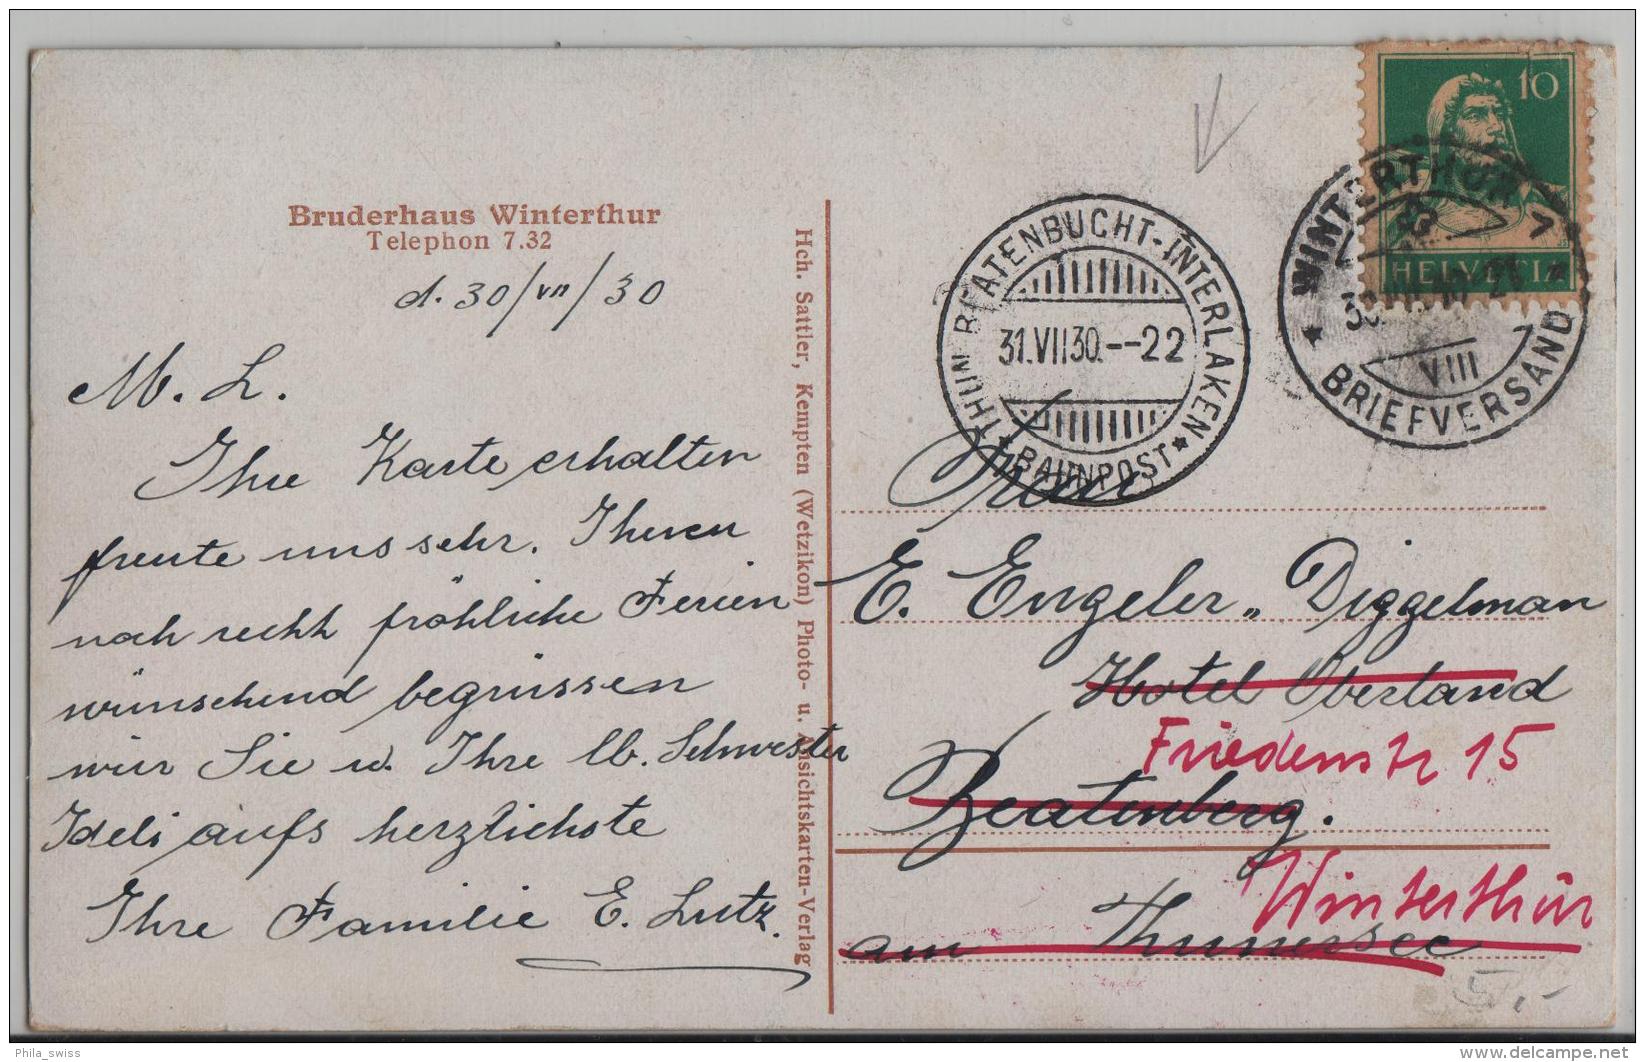 Bruderhaus Winterthur
Telephon 7.32
d. 30/VII/30
M. L.
Ihre Karte erhalten
freute uns sehr. Ihnen
noch recht fröhliche Ferien
wünschend begrüssen
wir Sie u. Ihre lb. Schwester
Ideli aufs herzlichste
Ihre Familie E. Lutz.
Hch. Sattler, Kempten (Wetzikon) Photo- u. Ansichtskarten-Verlag
THUN BEATENBUCHT-INTERLAKEN
31.VII30.--22
BAHNPOST
10
HELVETIA
WINTERTHUR 1
VIII
BRIEFVERSAND
Frau
E. Engeler-Diggelman
Hotel Oberland
Friedenstr 15
Beatenberg.
Winterthur
am Thunersee
5,-
Phila_swiss
www.delcampe.net